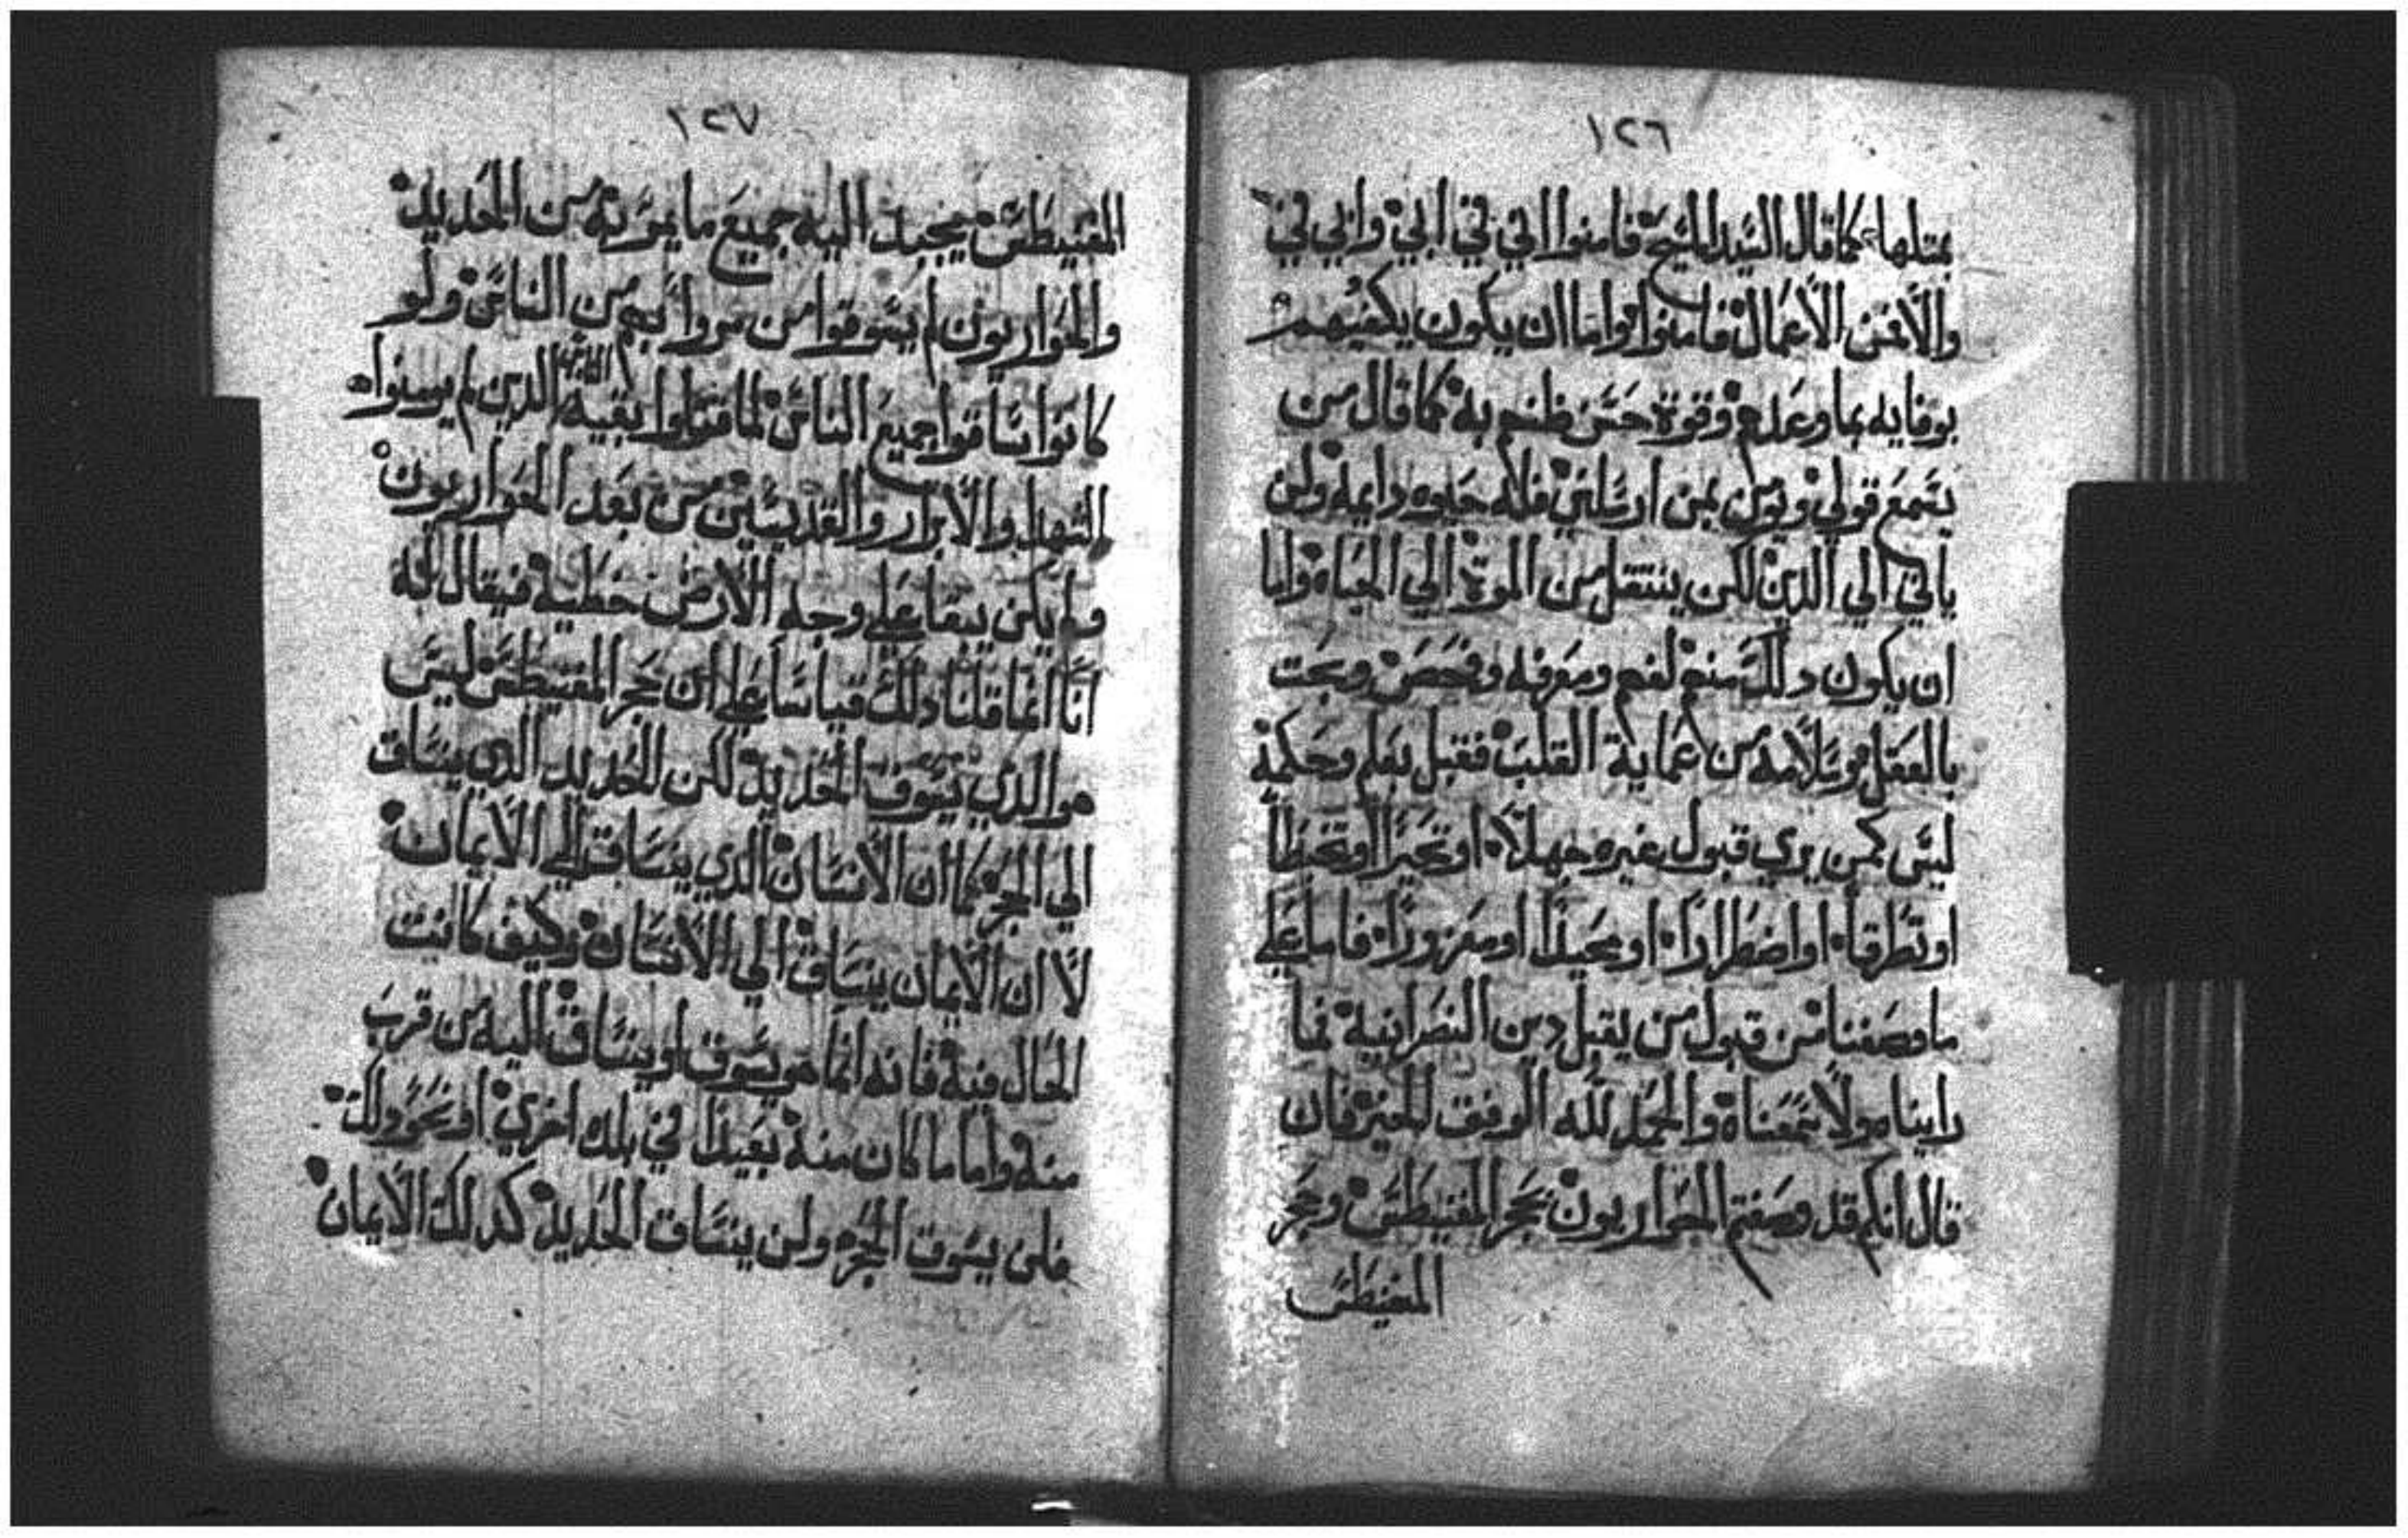 ١٢٦
بمتلها كما قال السيد المسيح فامنوا اني في ابي وابي في
والا فمن الاعمال فامنوا واما ان يكون يكفيهم
بوفايه بما وعدهم وقوة حسن ظنهم به كما قال من
يسمع قولي ويومن بمن ارسلني فله حياه دايمه ولن
ياتي الي الدين لكن ينتقل من الموت الي الحياه واما
ان يكون دلك منهم لفهم ومعرفه وفحص وبحت
بالعقل وسلامه من عماية القلب فقبل بعلم وحكمة
ليس كمن يري قبول غيره جهلا او تحيرا او تخبطا
او تطرقا او اضطرارا او محيلا او مغرورا فاما علي
ما وصفنا من قبول من يقبل دين النصرانية فما
راينا مولا بمعناة والحمد لله الموفق للخير فان
قال انكم قد وصفتم الحواريون بحجر المغنيطس وحجر
المغنيطس
١٢٧
المغنيطس يجبد اليه جميع ما يمر به من الحديد
والحواريون لم يسوقوا من مروا بهم من الناس ولو
كانوا ساقوا جميع الناس لما قتلوا بقيه الناس الدين لم يومنوا
الشهدا والابرار والقديسين من بعد الحواريون
ولم يكن يبقا علي وجه الارض خطية فيقال له
انا انما قلنا دلك قياسا علي ان حجر المغنيطس ليس
هو الدي يسوق الحديد لكن الحديد الدي ينساق
الي الحجر كما ان الانسان الدي ينساق الي الايمان
لا ان الايمان ينساق الي الانسان وكيف كانت
الحال فية فانه انما هو يسوق او ينساق اليه من قرب
منه واما ما كان منه بعيدا في بلد اخري او نحو دلك
فلن يسوق الحجر ولن ينساق الحديد كدلك الايمان